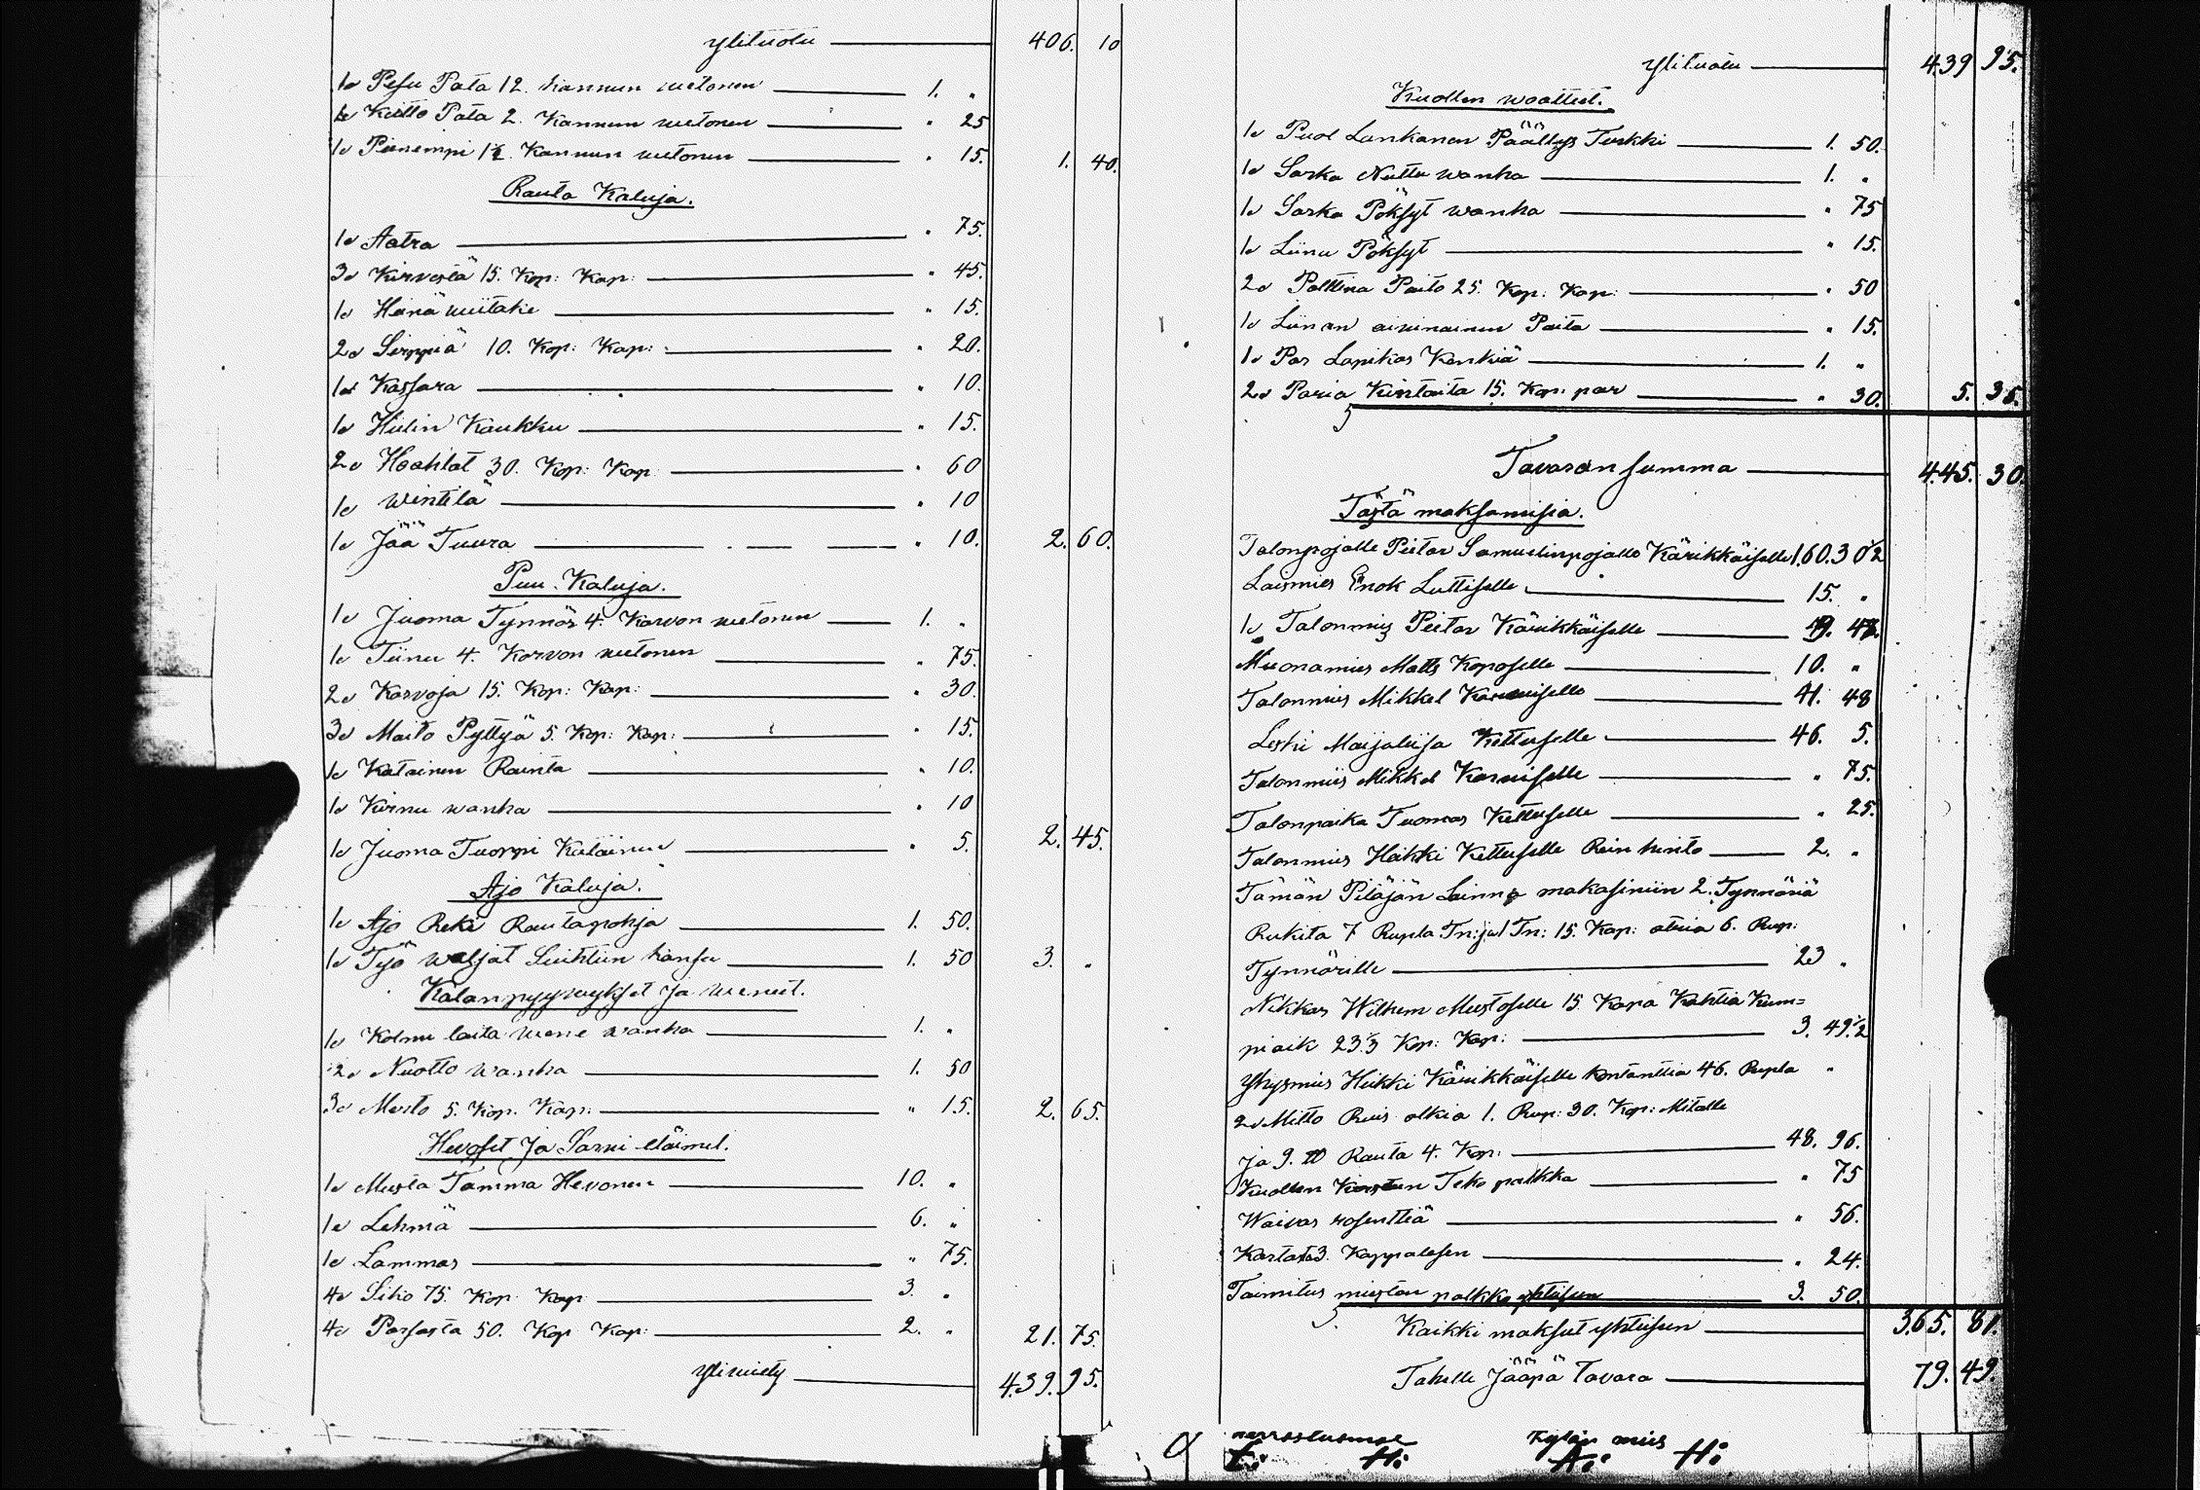 Ylituotu 406. 10
1d Pesu Pata 12. kannun wetonen 1. "
1d Keitto Pata 2. Kannun wetonen " 25
1d Pienempi 1½. Kannun wetonen " 15. 1. 40.
Rauta Kaluja.
1d Aatra " 75.
3d Kirvestä 15. Kop: Kap: " 45.
1d Heinä wiitake " 15.
2d Sirppiä 10. Kop: Kap: " 20.
1d Kassara " 10.
1d Hiilin Koukku " 15.
2d Haahlat 30. Kop: Kap: " 60
1d Wintilä " 10
1d Jää Tuura " 10. 2. 60.
Puu. Kaluja.
1d Juoma Tynnör 4. Korvon wetonen 1. "
1d Tiinu 4. Korvon wetonen " 75.
2d Korvoja 15. Kop: Kap: " 30.
3d Maito Pyttyä 5. Kop: Kap: " 15.
1d Katainen Rainta " 10.
1d Kirnu wanha " 10
1d Juoma Tuoppi " 5. 2. 45.
Ajo Kaluja.
1d Ajo Reki Rautapohja 1. 50.
1d Työ waljat kansa 1. 50 3. "
Kalanpyyvykset ja weneet.
1d Kolmi laita wene wanha 1. "
2d Nuotto wanha 1. 50
3d Merto 5. Kop. Kap: " 15. 2. 65.
Hevoset ja Sarvi eläimet.
1d Musta Tamma Hevonen 10. "
1d Lehmä 6. "
1d Lammas " 75.
4d Siko 75. Kop Kap 3. "
4d Porsasta 50. Kop Kap: 2. " 21. 75.
Yliwiety 439. 95.
Ylituotu 439 95.
Kuollen waatteet.
1d Puol Lankanen Päällys Turkki 1. 50.
1d Sarka Nuttu wanha 1. "
1d Sarka Pöksyt wanha " 75
1d Liinu Pöksyt " 15.
2d Palttina Paito 25. Kop: Kap: " 50
1d Liinan aivinainen Paita " 15.
1d Par Lapikas Kenkiä 1. "
2d Paria Kintaita 15. Kop: par " 30. 5. 35.
Tavaran summa 445. 30.
Tästä maksamisia.
Talonpojalle Pietar Samuelinpojalle Kärikkäiselle 160. 30½
Enok Luttiselle 15. "
1d Talonmies Pietar Kärikkäiselle 48.
Muonamies Matts Koposelle 10. "
Talonmies Mikkel 41. 48
Leski Maijaliisa Kettuselle 46. 5.
Talonmies Mikkel " 75.
Talonpoika Tuomas Kettuselle " 25.
Talonmies Heikki Kettuselle 2. "
Tämän Pitäjän Lainna makasiniin 2. Tynnöriä
Rukiita 7 Rupla Tn: ja 1 Tn: 15. Kap: 6. Rup:
Tynnörille 23 "
Nikkar Wilhem Mustoselle 15 Kapa Kahtia Kum=
piaik 23⅓ Kop: Kap: 3. 49½
Yksymies Heikki Kärikkäiselle kontanttia 46. Rupla "
2d Mitto Ruis olkia 1. Rup: 30. Kop: Mitalle
ja 9. Rauta 4. Kop: 48. 96.
Kuollen Teko palkka " 75
Waivas rosenttiä " 56.
Kartasta 3. " 24.
Toimitus miesten palkka yhtiisen 3. 50.
Kaikki maksut yhtiisen 365. 81.
Takelle Jääpä Tavara 79. 49.
perrosluomoe kylän mies
E: H: A: H: